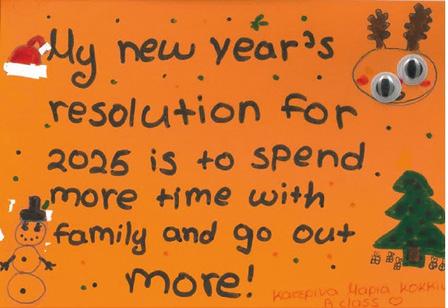 My new year's
resolution for
2025 is to spend
more time with
family and go out
more!
Κατερίνα Μαρία Κοκκι
Α class